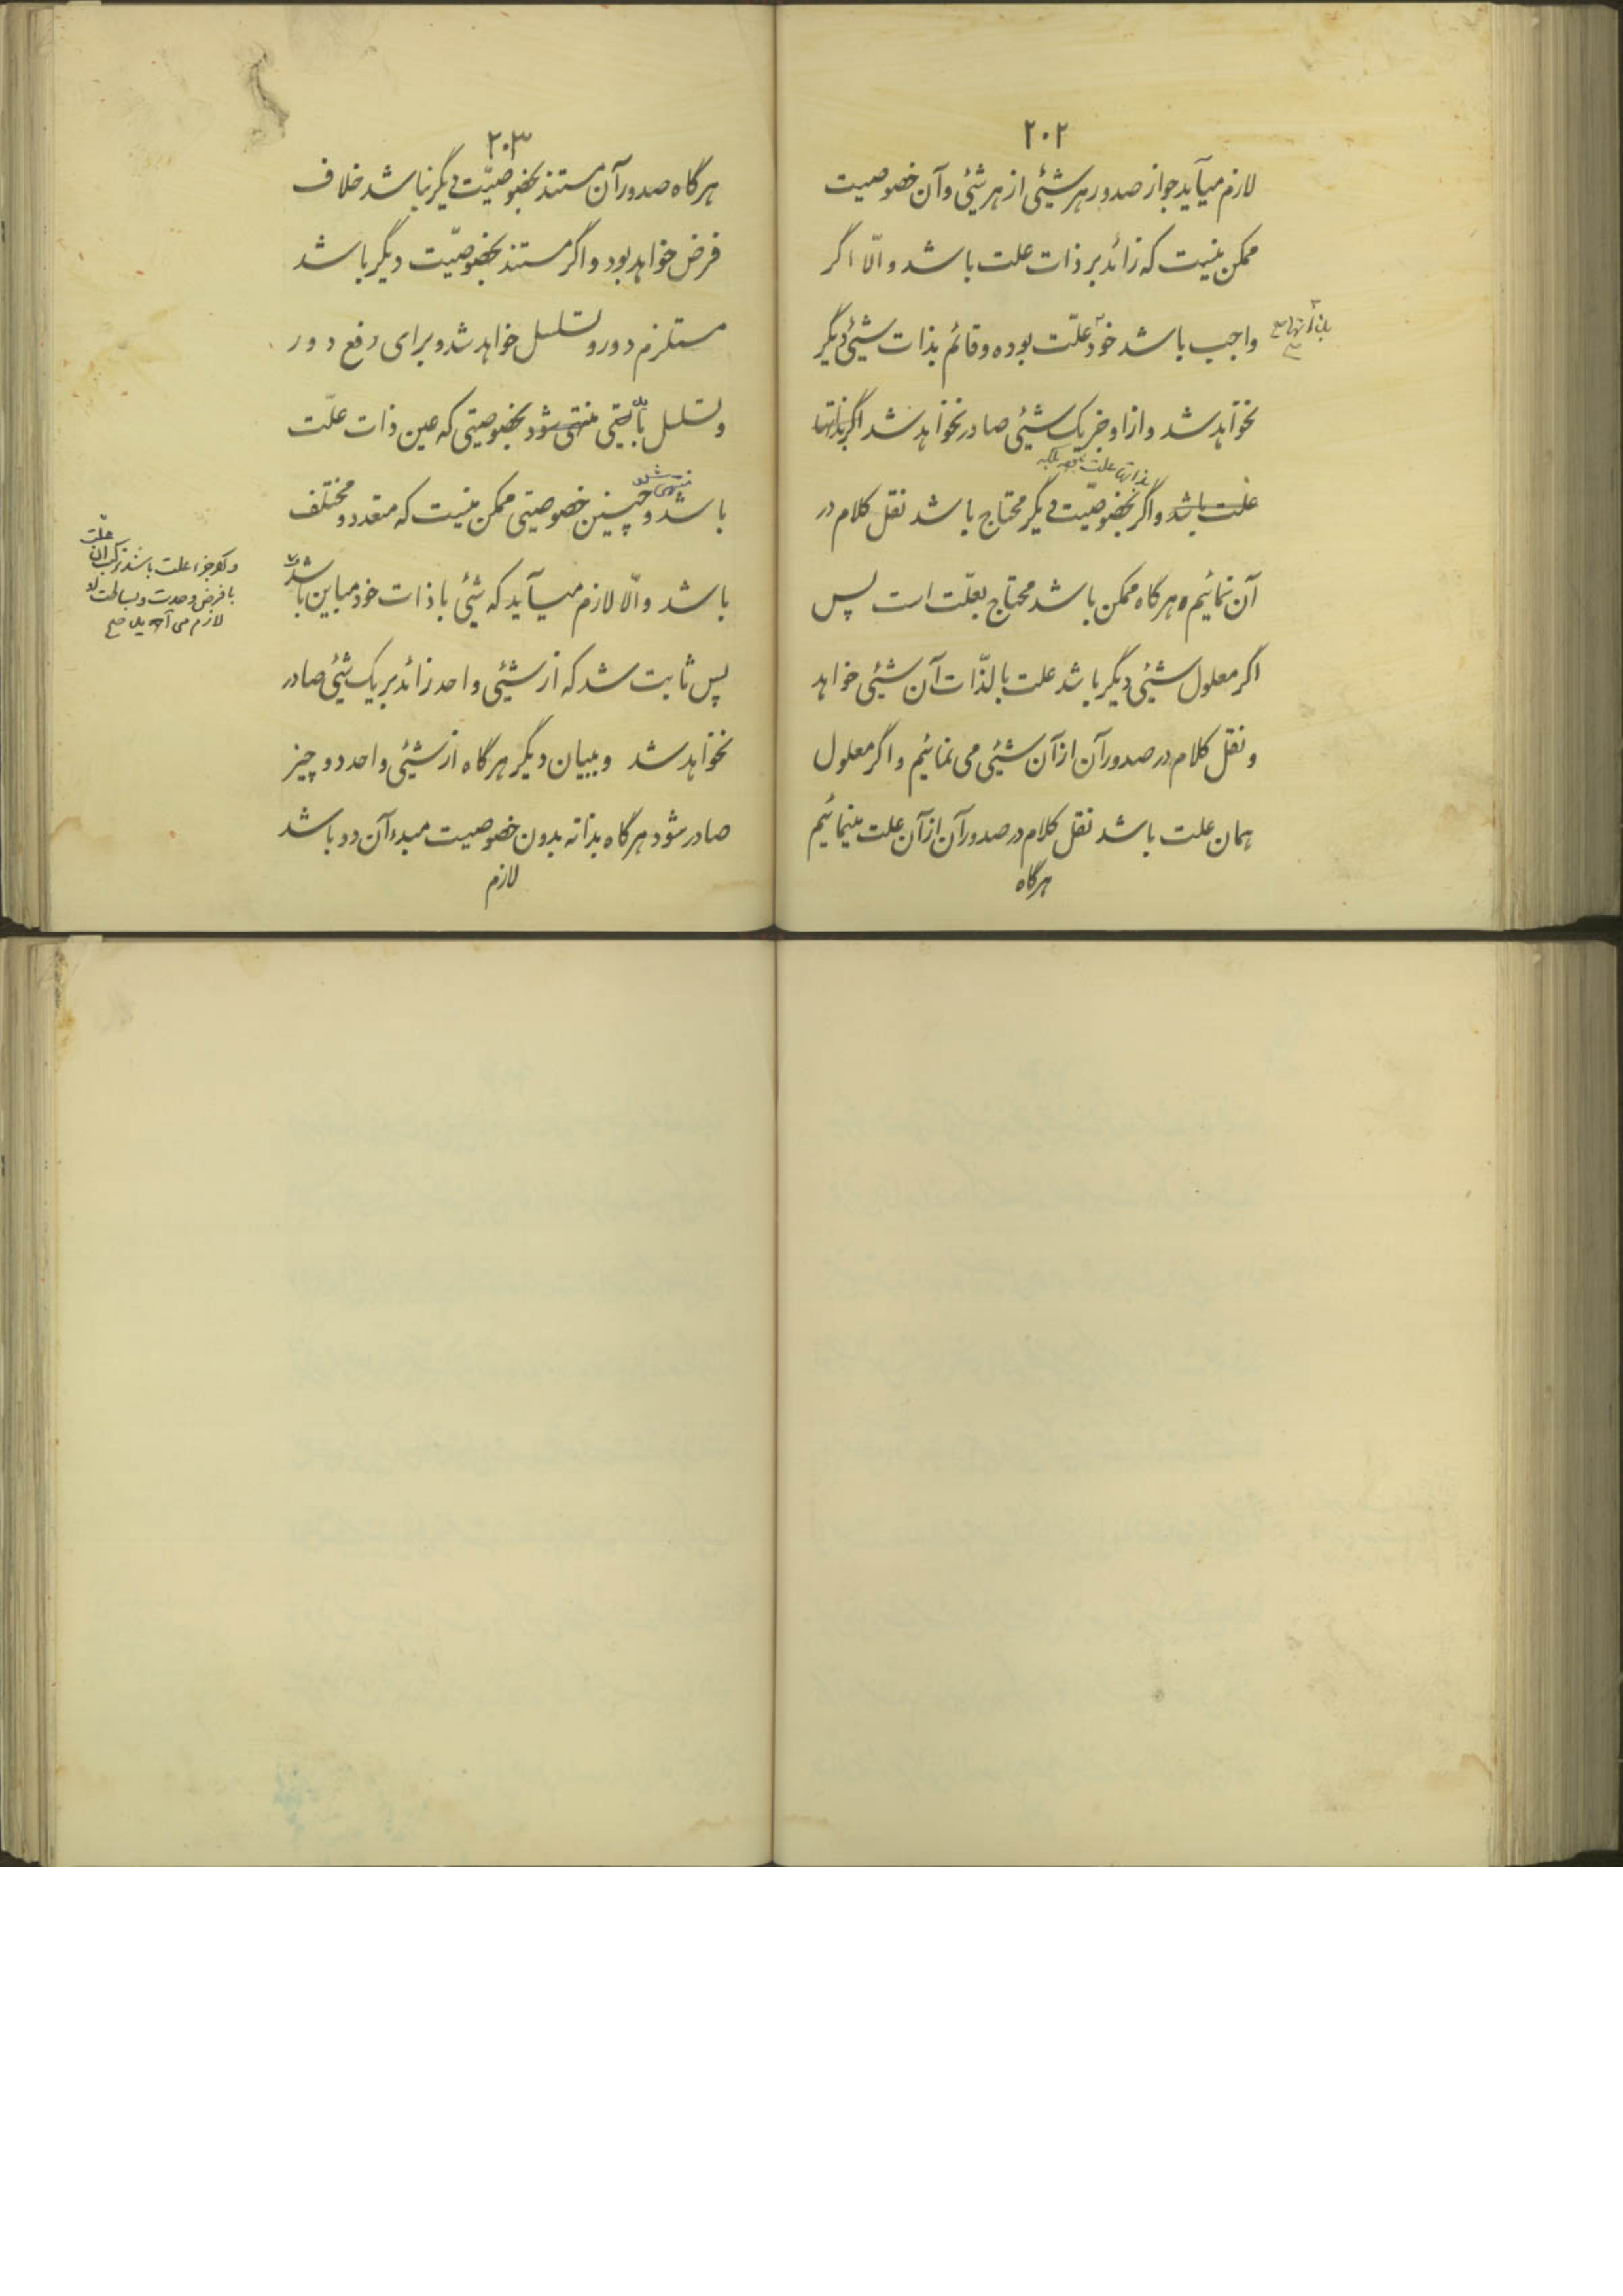 ۲۰۲
لازم میآید جواز صدور هر شیئی از هر شیئی و آن خصوصیت
ممکن نیست که زائد بر ذات علت باشد و الّا اگر
واجب باشد خود علّت بوده و قائم بذات شیئی دیگر
نخواهد شد و از او جز یک شیئی صادر نخواهد شد اگر بذاتها
بذاتها علت
علت باشد و اگر بخصوصیّت دیگر محتاج باشد نقل کلام در
آن نمائیم و هرگاه ممکن باشد محتاج بعلّت است پس
اگر معلول شیئی دیگر باشد علت بالذّات آن شیئی خواهد
و نقل کلام در صدور آن از آن شیئی می نمائیم و اگر معلول
همان علت باشد نقل کلام در صدور آن از آن علت مینمائیم
هرگاه
۲۰۳
هرگاه صدور آن مستند بخصوصیّت دیگر نباشد خلاف
فرض خواهد بود و اگر مستند بخصوصیّت دیگر باشد
مستلزم دور و تسلسل خواهد شد و برای رفع دور
و تسلسل منتهی شود بخصوصیتی که عین ذات علّت
باشد و چنین خصوصیتی ممکن نیست که متعدد و مختلف
باشد و الّا لازم میآید که شیئی با ذات خود مباین باشد
علّت
جزء علت باشند ترکب آن
با فرض وحدت و بساطت
لازم می آید صح
پس ثابت شد که از شیئی واحد زائد بر یک شیئی صادر
نخواهد شد و ببیان دیگر هرگاه از شیئی واحد دو چیز
صادر شود هرگاه بذاته بدون خصوصیت مبدء آن دو باشد
لازم